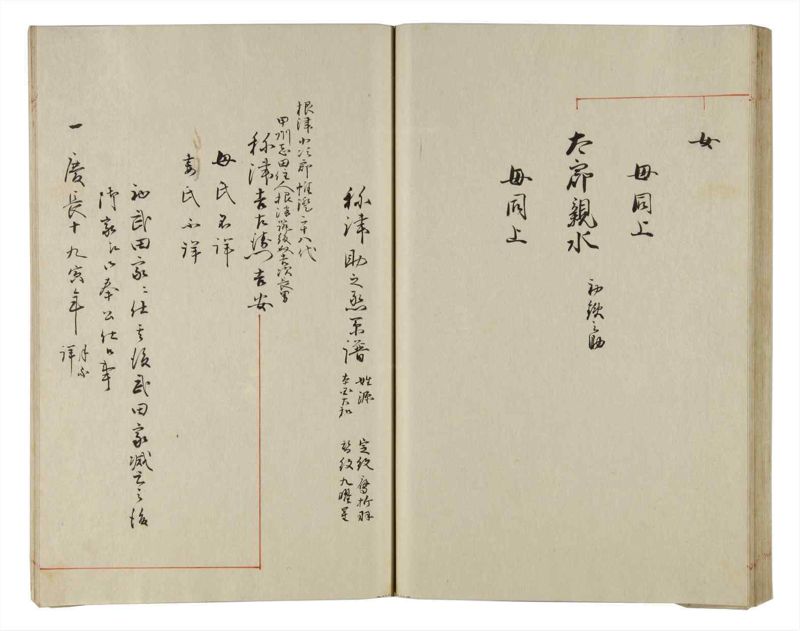 女
母同上
太郎親水
初鉄之助
母同上
祢津助之丞系譜
姓源
本国大和
定紋
替紋九曜星
根津小次郎惟澄二十八代
甲州志田住人根津
祢津吉左衛門吉安
母氏不詳
妻氏不詳
初武田家ニ仕其後武田家滅亡之後
御家江御奉公仕候事
一慶長十九寅年
月不
詳